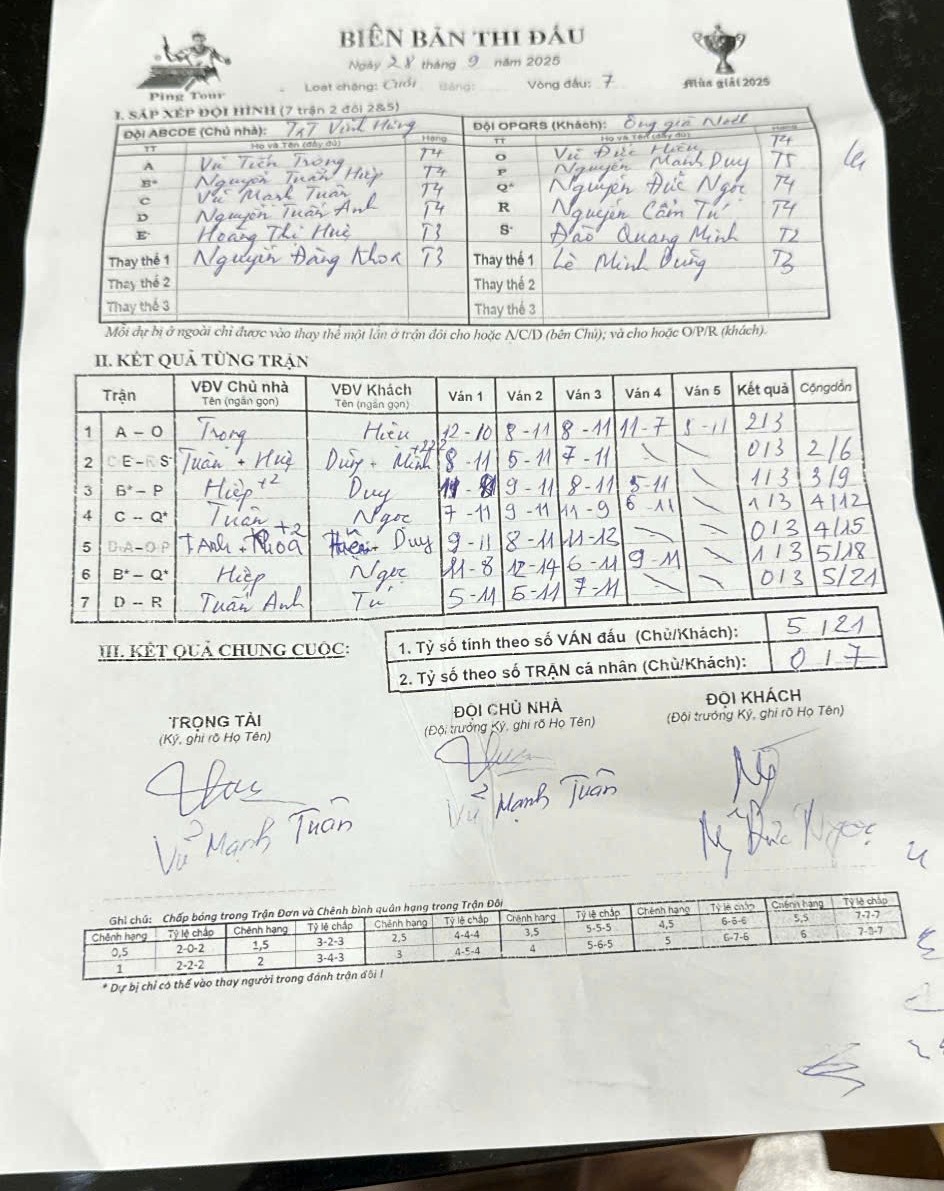 BIÊN BẢN THI ĐẤU
Ngày 28 tháng 9 năm 2025
Ping Tour
Loạt chặng: Cuối Bảng: Vòng đấu: 7
Mùa giải 2025
I. SẮP XẾP ĐỘI HÌNH (7 trận 2 đôi 2&5)
Đội ABCDE (Chủ nhà): T&T Vĩnh Hưng Đội OPQRS (Khách): Ông già Noel
TT Họ và Tên (đầy đủ) Hạng TT Họ và Tên (đầy đủ) Hạng
A Vũ Tiến Trọng T4 O Vũ Đức Hiếu T4
B* Nguyễn Tuấn Hiệp T4 P Nguyễn Mạnh Duy T5
C Vũ Mạnh Tuân T4 Q* Nguyễn Đức Ngọc T4
D Nguyễn Tuấn Anh T4 R Nguyễn Cẩm Tú T4
E Hoàng Thị Huệ T3 S Đào Quang Minh T2
Thay thế 1 Nguyễn Đăng Khoa T3 Thay thế 1 Lê Minh Dũng T3
Thay thế 2 Thay thế 2
Thay thế 3 Thay thế 3
Mỗi dự bị ở ngoài chỉ được vào thay thế một lần ở trận đôi cho hoặc A/C/D (bên Chủ); và cho hoặc O/P/R (khách).
II. KẾT QUẢ TỪNG TRẬN
Trận VĐV Chủ nhà Tên (ngắn gọn) VĐV Khách Tên (ngắn gọn) Ván 1 Ván 2 Ván 3 Ván 4 Ván 5 Kết quả Cộng dồn
1 A – O Trọng Hiếu 12-10 8-11 8-11 11-7 8-11 2/3
2 C E – R S Tuân + Huệ Dũng + Minh +222 8-11 5-11 7-11 0/3 2/6
3 B* – P Hiệp +2 Duy 9-11 8-11 5-11 1/3 3/9
4 C – Q* Tuân Ngọc 7-11 9-11 11-9 6-11 1/3 4/12
5 D A – O P T Anh + Khoa +2 Hiếu + Duy 9-11 8-11 11-13 0/3 4/15
6 B* – Q* Hiệp Ngọc 11-8 12-14 6-11 9-11 1/3 5/18
7 D – R Tuấn Anh Tú 5-11 5-11 7-11 0/3 5/21
III. KẾT QUẢ CHUNG CUỘC:
1. Tỷ số tính theo số VÁN đấu (Chủ/Khách): 5/21
2. Tỷ số theo số TRẬN cá nhân (Chủ/Khách): 0/7
TRỌNG TÀI ĐỘI CHỦ NHÀ ĐỘI KHÁCH
(Ký, ghi rõ Họ Tên) (Đội trưởng Ký, ghi rõ Họ Tên) (Đội trưởng Ký, ghi rõ Họ Tên)
Vũ Mạnh Tuân Vũ Mạnh Tuân Ng Đức Ngọc
Ghi chú: Chấp bóng trong Trận Đơn và Chênh bình quân hạng trong Trận Đôi
Chênh hạng Tỷ lệ chấp Chênh hạng Tỷ lệ chấp Chênh hạng Tỷ lệ chấp Chênh hạng Tỷ lệ chấp Chênh hạng Tỷ lệ chấp Chênh hạng Tỷ lệ chấp
0,5 2-0-2 1,5 3-2-3 2,5 4-4-4 3,5 5-5-5 4,5 6-6-6 5,5 7-7-7
1 2-2-2 2 3-4-3 3 4-5-4 4 5-6-5 5 6-7-6 6 7-8-7
* Dự bị chỉ có thể vào thay người trong đánh trận đôi !